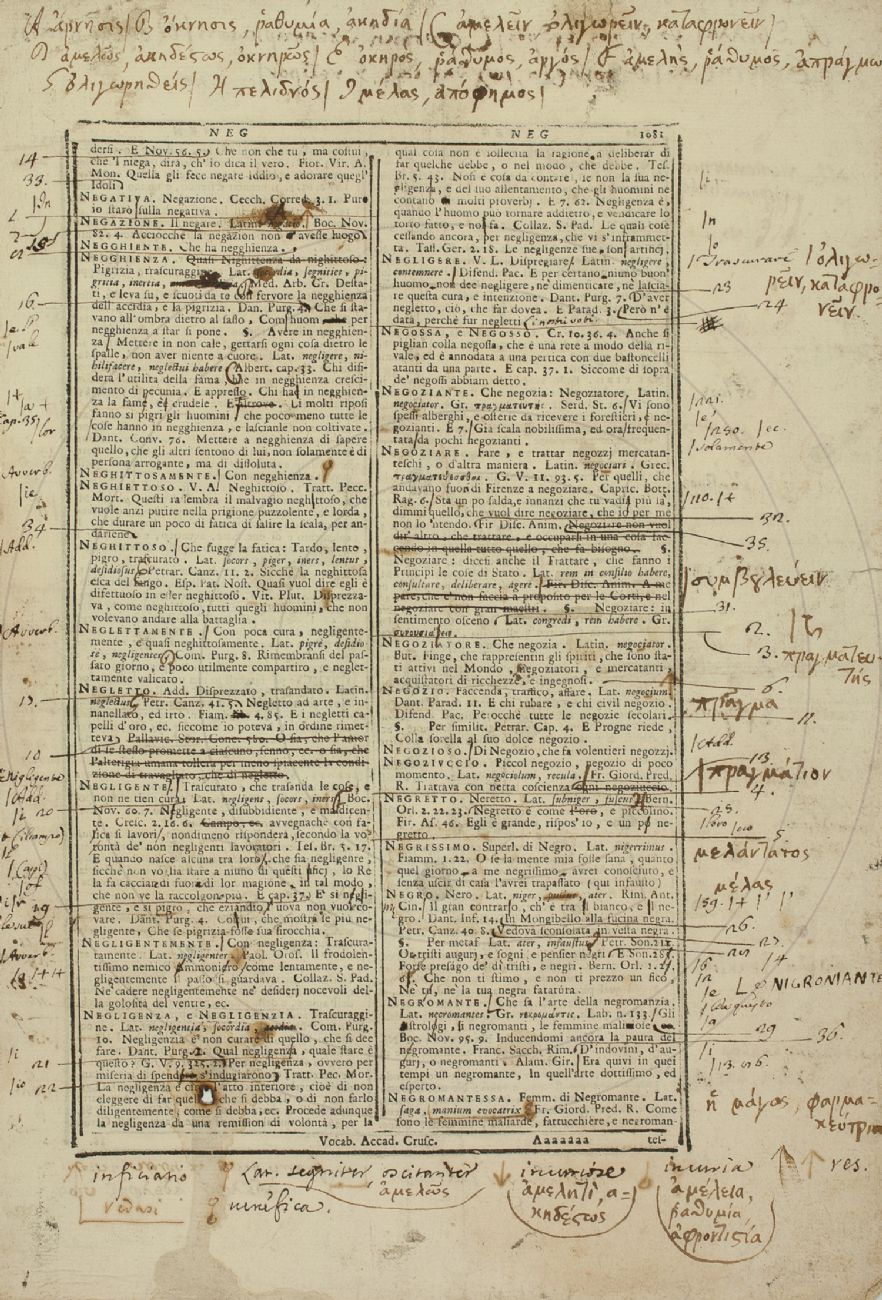 Α ἄρνησις / Β ὄκνησις, ῥαθυμία, ἀκηδία / C ἀμελεῖν ὀλιγωρεῖν, καταφρονεῖν /
D ἀμελῶς, ἀκηδέστως, ὀκνηρῶς / E ὀκνηρος, ῥάθυμος, ἀργός / F ἀμελής, ῥάθυμος,
G ὀλιγωρηθείς / H πελιδνός / I μέλας, ἀπόφημος /
NEG NEG 1081
dersi. E Nov. 56. 5. Che non che tu, ma costui,
che 'l niega, dirà, ch' io dica il vero. Fior. Vir. A.
Mon. Quella gli fece negare iddio, e adorare quegl'
Idoli
NEGATIVA. Negazione. Cecch. Corred. 3. 1. Pure
io starò sulla negativa.
NEGAZIONE. Il negare. Latin. Boc. Nov.
82. 4. Acciocchè la negazion non avesse luogo.
NEGGHIENTE. Che ha negghienza.
NEGGHIENZA. Quasi Nighittenza da nighittoso:
Pigrizia, trascuraggine. Lat. segnities, pi-
gritia, inertia, Med. Arb. Cr. Desta-
ti, e leva su, e scuoti da te con fervore la negghienza
dell' accidia, e la pigrizia. Dan. Purg. 4. Che si sta-
vano all' ombra dietro al sasso, Com' huom per
negghienza a star si pone. §. Avere in negghien-
za, Mettere in non cale, gettarsi ogni cosa dietro le
spalle, non aver niente a cuore. Lat. negligere, ni-
hilifacere, neglectui habere. Albert. cap. 33. Chi disi-
dera l'utilità della fama, che in negghienza cresci-
mento di pecunia. E appresso. Chi ha in negghien-
za la fame, è crudele. E altrove. Li molti riposi
fanno si pigri gli huomini, che poco meno tutte le
cose hanno in negghienza, e lascianle non coltivate.
Dant. Conv. 76. Mettere a negghienza di sapere
quello, che gli altri sentono di lui, non solamente è di
persona arrogante, ma di dissoluta.
NEGHITTOSAMENTE. Con negghienza.
NEGHIETTOSO. V. A. Neghittoso. Tratt. Pecc.
Mort. Questi rassembra il malvagio neghittoso, che
vuole anzi putire nella prigione puzzolente, e lorda,
che durare un poco di fatica di salire la scala, per an-
darsene.
NEGHITTOSO. Che fugge la fatica: Tardo, lento,
pigro, trascurato. Lat. socors, piger, iners, lentus,
desidiosus. Petrar. Canz. 11. 2. Sicchè la neghittosa
esca del fango. Esp. Pat. Nost. Quasi vuol dire egli è
difettuoso in esser neghittoso. Vit. Plut. Disprezza-
va, come neghittoso, tutti quegli huomini, che non
volevano andare alla battaglia.
NEGLETTAMENTE. Con poca cura, negligente-
mente, e quasi neghittosamente. Lat. pigre, desidio
se, negligenter. Com. Purg. 8. Rimembransi del pas-
sato giorno, e poco utilmente compartiro, e neglet-
tamente valicato.
NEGLETTO. Add. Disprezzato, trasandato. Latin.
neglectus. Petr. Canz. 41. 5. Negletto ad arte, e in-
nanellato, ed irto. Fiam. 4. 85. E i negletti ca-
pelli d'oro, ec. siccome io poteva, in ordine rimet-
teva. Pallavic. Stor. Conc. 580. O sia, che l'amor
di se stesso promette a ciascuno, senno, ec. o sia, che
l'alterigia umana tollera per meno spiacente la condi-
zione di travagliato, che di negletto.
NEGLIGENTE. Trascurato, che trasanda le cose, e
non ne tien cura. Lat. negligens, socors, iners. Boc.
Nov. 60. 7. Negligente, disubbidiente, e maldicen-
te. Cresc. 2. 18. 6. avvegnachè con fa-
tica si lavori, nondimeno risponderà, secondo la vo-
lontà de' non negligenti lavoratori. Tes. Br. 5. 17.
E quando nasce alcuna tra loro, che sia negligente,
sicchè non voglia stare a niuno di questi ufficj, lo Re
la fa cacciar di fuori di lor magione, in tal modo,
che non ve la raccolgon più. E cap. 37. E' si negli-
gente, e si pigro, che eziandio l'uova non vuol co-
vare. Dant. Purg. 4. Colui, che mostra se più ne-
gligente, Che se pigrizia fosse sua sirocchia.
NEGLIGENTEMENTE. Con negligenza: Trascura-
tamente. Lat. negligenter. Paol. Oros. Il frodolen-
tissimo nemico ammonigro, come lentamente, e ne-
gligentemente si passò si guardava. Collaz. S. Pad.
Ne' cadere negligentemente ne' desiderj nocevoli del-
la golosità del ventre, ec.
NEGLIGENZA, E NEGLIGENZIA. Trascuraggi-
ne. Lat. negligencia, socordia, Com. Purg.
10. Negligenzia è non curare di quello, che si dee
fare. Dant. Purg. 2. Qual negligenza, quale stare è
questo? G. V. 9. 325. 2. Per negligenza, ovvero per
miseria di spendere s'indugiarono. Tratt. Pec. Mor.
La negligenza è cioè l'atto interiore, cioè di non
eleggere di far quello che si debba, o di non farlo
diligentemente, come si debba, ec. Procede adunque
la negligenza da una remission di volontà, per la
qual cosa non è sollecita la ragione a deliberar di
far quelche debbe, o nel modo, che debbe. Tes.
Br. 5. 43. Non è cosa da contare, se non la sua ne-
gligenza, e del suo allentamento, che gli huomini ne
contano molti proverbj. E 7. 62. Negligenza è,
quando l'huomo può tornare addietro, e vendicare lo
torto fatto, e nol fa. Collaz. S. Pad. Le quali cose
cessando ancora, per negligenza, che vi s'intrammet-
ta. Tass. Ger. 2. 18. Le negligenze sue, son' artificj.
NEGLIGERE. V. L. Dispregiare. Latin. negligere,
contemnere. Difend. Pac. E per certano niuno buon
huomo non dee negligere, ne' dimenticare, ne' lascia-
re questa cura, e intenzione. Dant. Purg. 7. D'aver
negletto, ciò, che far dovea. E Parad. 3. Però n'è
data, perchè fur negletti Li nostri voti.
NEGOSSA, E NEGOSSO. Cr. 10. 36. 4. Anche si
piglian colla negossa, che è una rete a modo della ri-
vale, ed è annodata a una pertica con due bastoncelli
atanti da una parte. E cap. 37. 1. Siccome di sopra
de' negossi abbiam detto.
NEGOZIANTE. Che negozia: Negoziatore, Latin.
negociator. Gr. πραγματευτής. Serd. St. 6. Vi sono
spessi alberghi, e osterie da ricevere i forestieri, e ne-
gozianti. E 7. Già scala nobilissima, ed ora frequen-
tata da pochi negozianti.
NEGOZIARE. Fare, e trattar negozzj mercatan-
teschi, o d'altra maniera. Latin. negociari. Grec.
πραγματεύεσθαι. G. V. 11. 93. 5. Per quelli, che
andavano fuori di Firenze a negoziare. Capric. Bott.
Rag. 6. Sta un po salda, innanzi che tu vadia più là,
dimmi quello, che vuol dire negoziare, che io per me
non lo 'ntendo. Fir Disc. Anim. Negoziare non vuol
dir' altro, che trattare, e occuparsi in una cosa fac-
cendo in quella tutto quello, che fa bisogno. §.
Negoziare: dicesi anche il Trattare, che fanno i
Principi le cose di Stato. Lat. rem in consilio habere,
consultare, deliberare, agere. Fir. Disc. Anim. A me
pare, che e' non faccia a proposito per le Corti, e nel
negoziare con gran maestri. §. Negoziare: in
sentimento osceno. Lat. congredi, rem habere. Gr.
συνουσιάζειν.
NEGOZIATORE. Che negozia. Latin. negociator.
But. Finge, che rappresentin gli spiriti, che sono sta-
ti attivi nel Mondo, negoziatori, e mercatanti,
acquistatori di ricchezze, e ingegnosi.
NEGOZIO. Faccenda, traffico, affare. Lat. negocium.
Dant. Parad. 11. E chi rubare, e chi civil negozio.
Difend. Pac. Perocchè tutte le negozie secolari.
§. Per similit. Petrar. Cap. 4. E Progne riede,
Colla sorella al suo dolce negozio.
NEGOZIOSO. Di Negozio, che fa volentieri negozzj.
NEGOZIUCCIO. Piccol negozio, negozio di poco
momento. Lat. negociolum, recula. Fr. Giord. Pred.
R. Trattava con netta coscienza ogni negoziuccio.
NEGRETTO. Neretto. Lat. subniger, fuscus. Bern.
Orl. 2. 22. 23. Negretto è come l'oro, e piccolino.
Fir. As. 46. Egli è grande, rispos' io, e un po ne-
gretto.
NEGRISSIMO. Superl. di Negro. Lat. nigerrimus.
Fiamm. 1. 22. O se la mente mia fosse sana, quanto
quel giorno a me negrissimo avrei conosciuto, e
senza uscir di casa l'avrei trapassato (qui infausto)
NEGRO. Nero. Lat. niger, ater. Rim. Ant.
Cin. Il gran contrario, ch' è tra il bianco, e il ne-
gro. Dant. Inf. 14. In Mongibello alla fucina negra.
Petr. Canz. 40. 8. Vedova sconsolata in vesta negra.
§. Per metaf. Lat. ater, infaustus. Petr. Son. 212.
O tristi augurj, e sogni, e pensier negri. E Son. 287.
Forse presago de' dì tristi, e negri. Bern. Orl. 1. 27.
6. Che non ti stimo, e non ti prezzo un fico,
Ne' te, ne' la tua negra fatatura.
NEGROMANTE. Che fa l'arte della negromanzia.
Lat. necromantes. Gr. νεκρομάντις. Lab. n. 133. Gli
astrologi, si negromanti, le femmine maliose
Boc. Nov. 95. 9. Inducendomi ancora la paura del
negromante. Franc. Sacch. Rim. D'indovini, d'au-
gurj, o negromanti. Alam. Gir. Era quivi in quei
tempi un negromante, In quell'arte dottissimo, ed
esperto.
NEGROMANTESSA. Femm. di Negromante. Lat.
saga, manium evocatrix. Fr. Giord. Pred. R. Come
sono le femmine maliarde, fattucchiere, e necroman-
Vocab. Accad. Crusc. Aaaaaaa tes-
14
33.
16.
34
13.
10
20
29
21
22
Avverb.
Add.
Avverb.
Trascurare
ὀλιγω-
ρεῖν, καταφρο-
νεῖν.
23
24
solamente
32.
35.
συμβουλεύειν
31.
2.
3. πραγματευ-
τής
6.
πρᾶγμα
11.
Add.
13.
πραγμάτιον
4.
25.
5
μελάντατος
μέλας
26.
27.
NIGROMANTE
29
36.
ἢ μάγος, φαρμα-
κεύτρια
inficiatio
Lat. segniter, oscitanter
ἀμελῶς
venefica.
incuriose
ἀμελητί, ἀ-
κηδέστως
incuria
ἀμέλεια,
ῥαθυμία
ἀφροντισία
res.